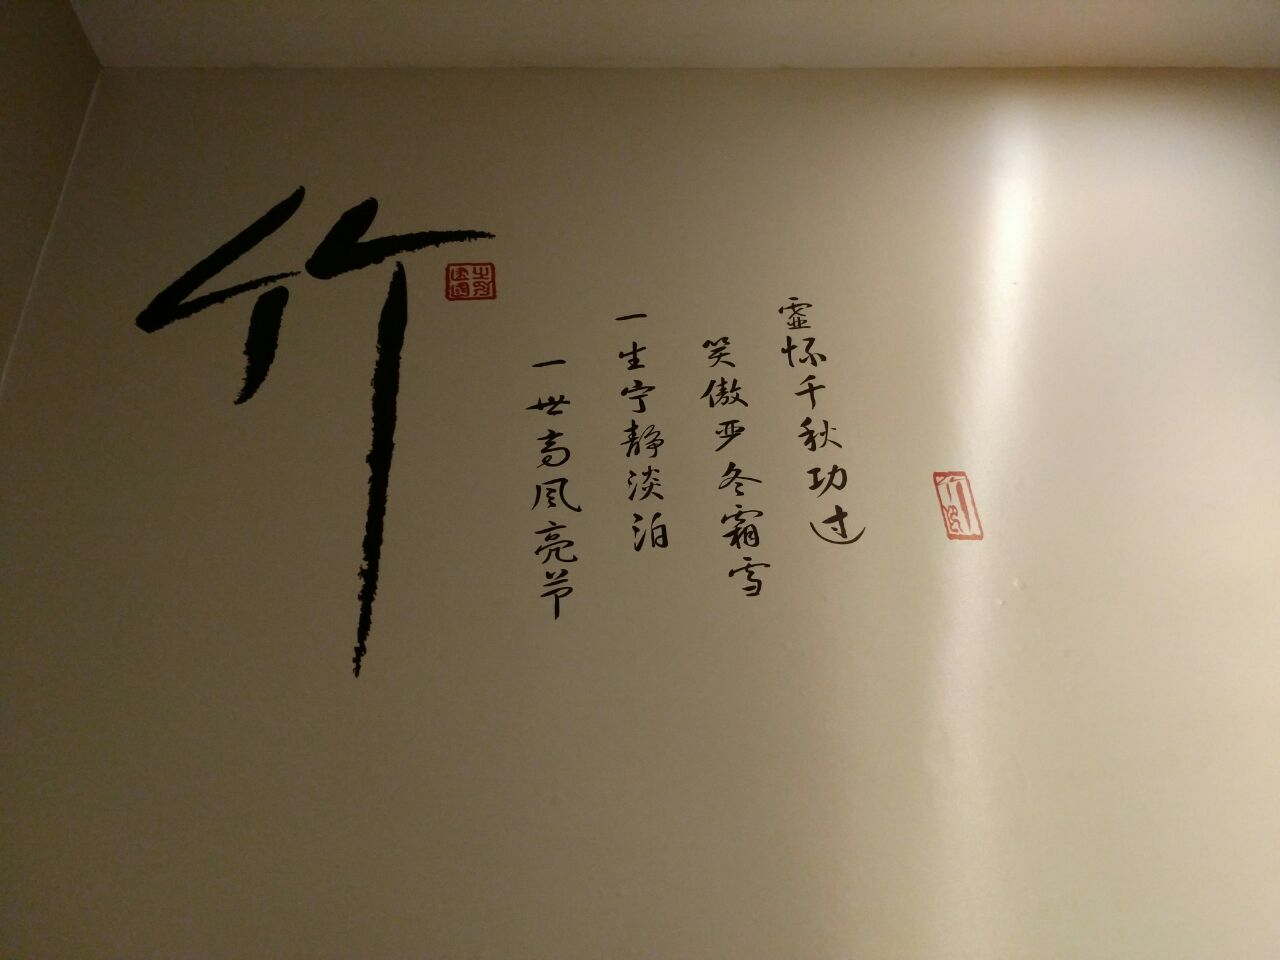 竹
虚怀千秋功过
笑傲严冬霜雪
一生宁静淡泊
一世高风亮节